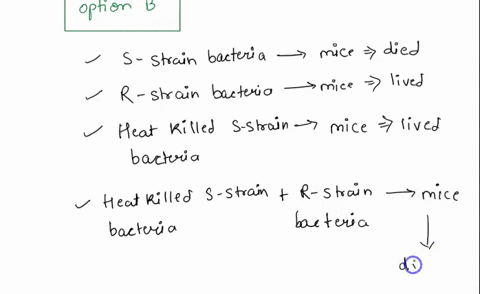 option B
S-strain bacteria → mice ⇒ died
R-strain bacteria → mice ⇒ lived
Heat killed S-strain → mice ⇒ lived
bacteria
Heat killed S-strain + R-strain → mice
bacteria bacteria
di